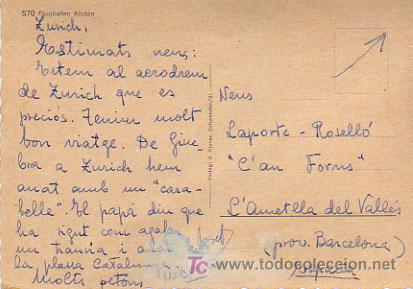 570 Flughafen Kloten
Zurich,
Estimats nens:
Estem al aerodrem
de Zurich que es
preciós. Tenim molt
bon viatge. De Gine
bra a Zurich hem
anat amb un "cara-
belle". El papá diu que
ha sigut com agafar
un tranvia i a
la plassa Catalunya
Molts petons
Nens
Laporte - Roselló
"C'an Forns"
L'Ametlla del Vallés
(prov. Barcelona)
España
TC todocoleccion.net